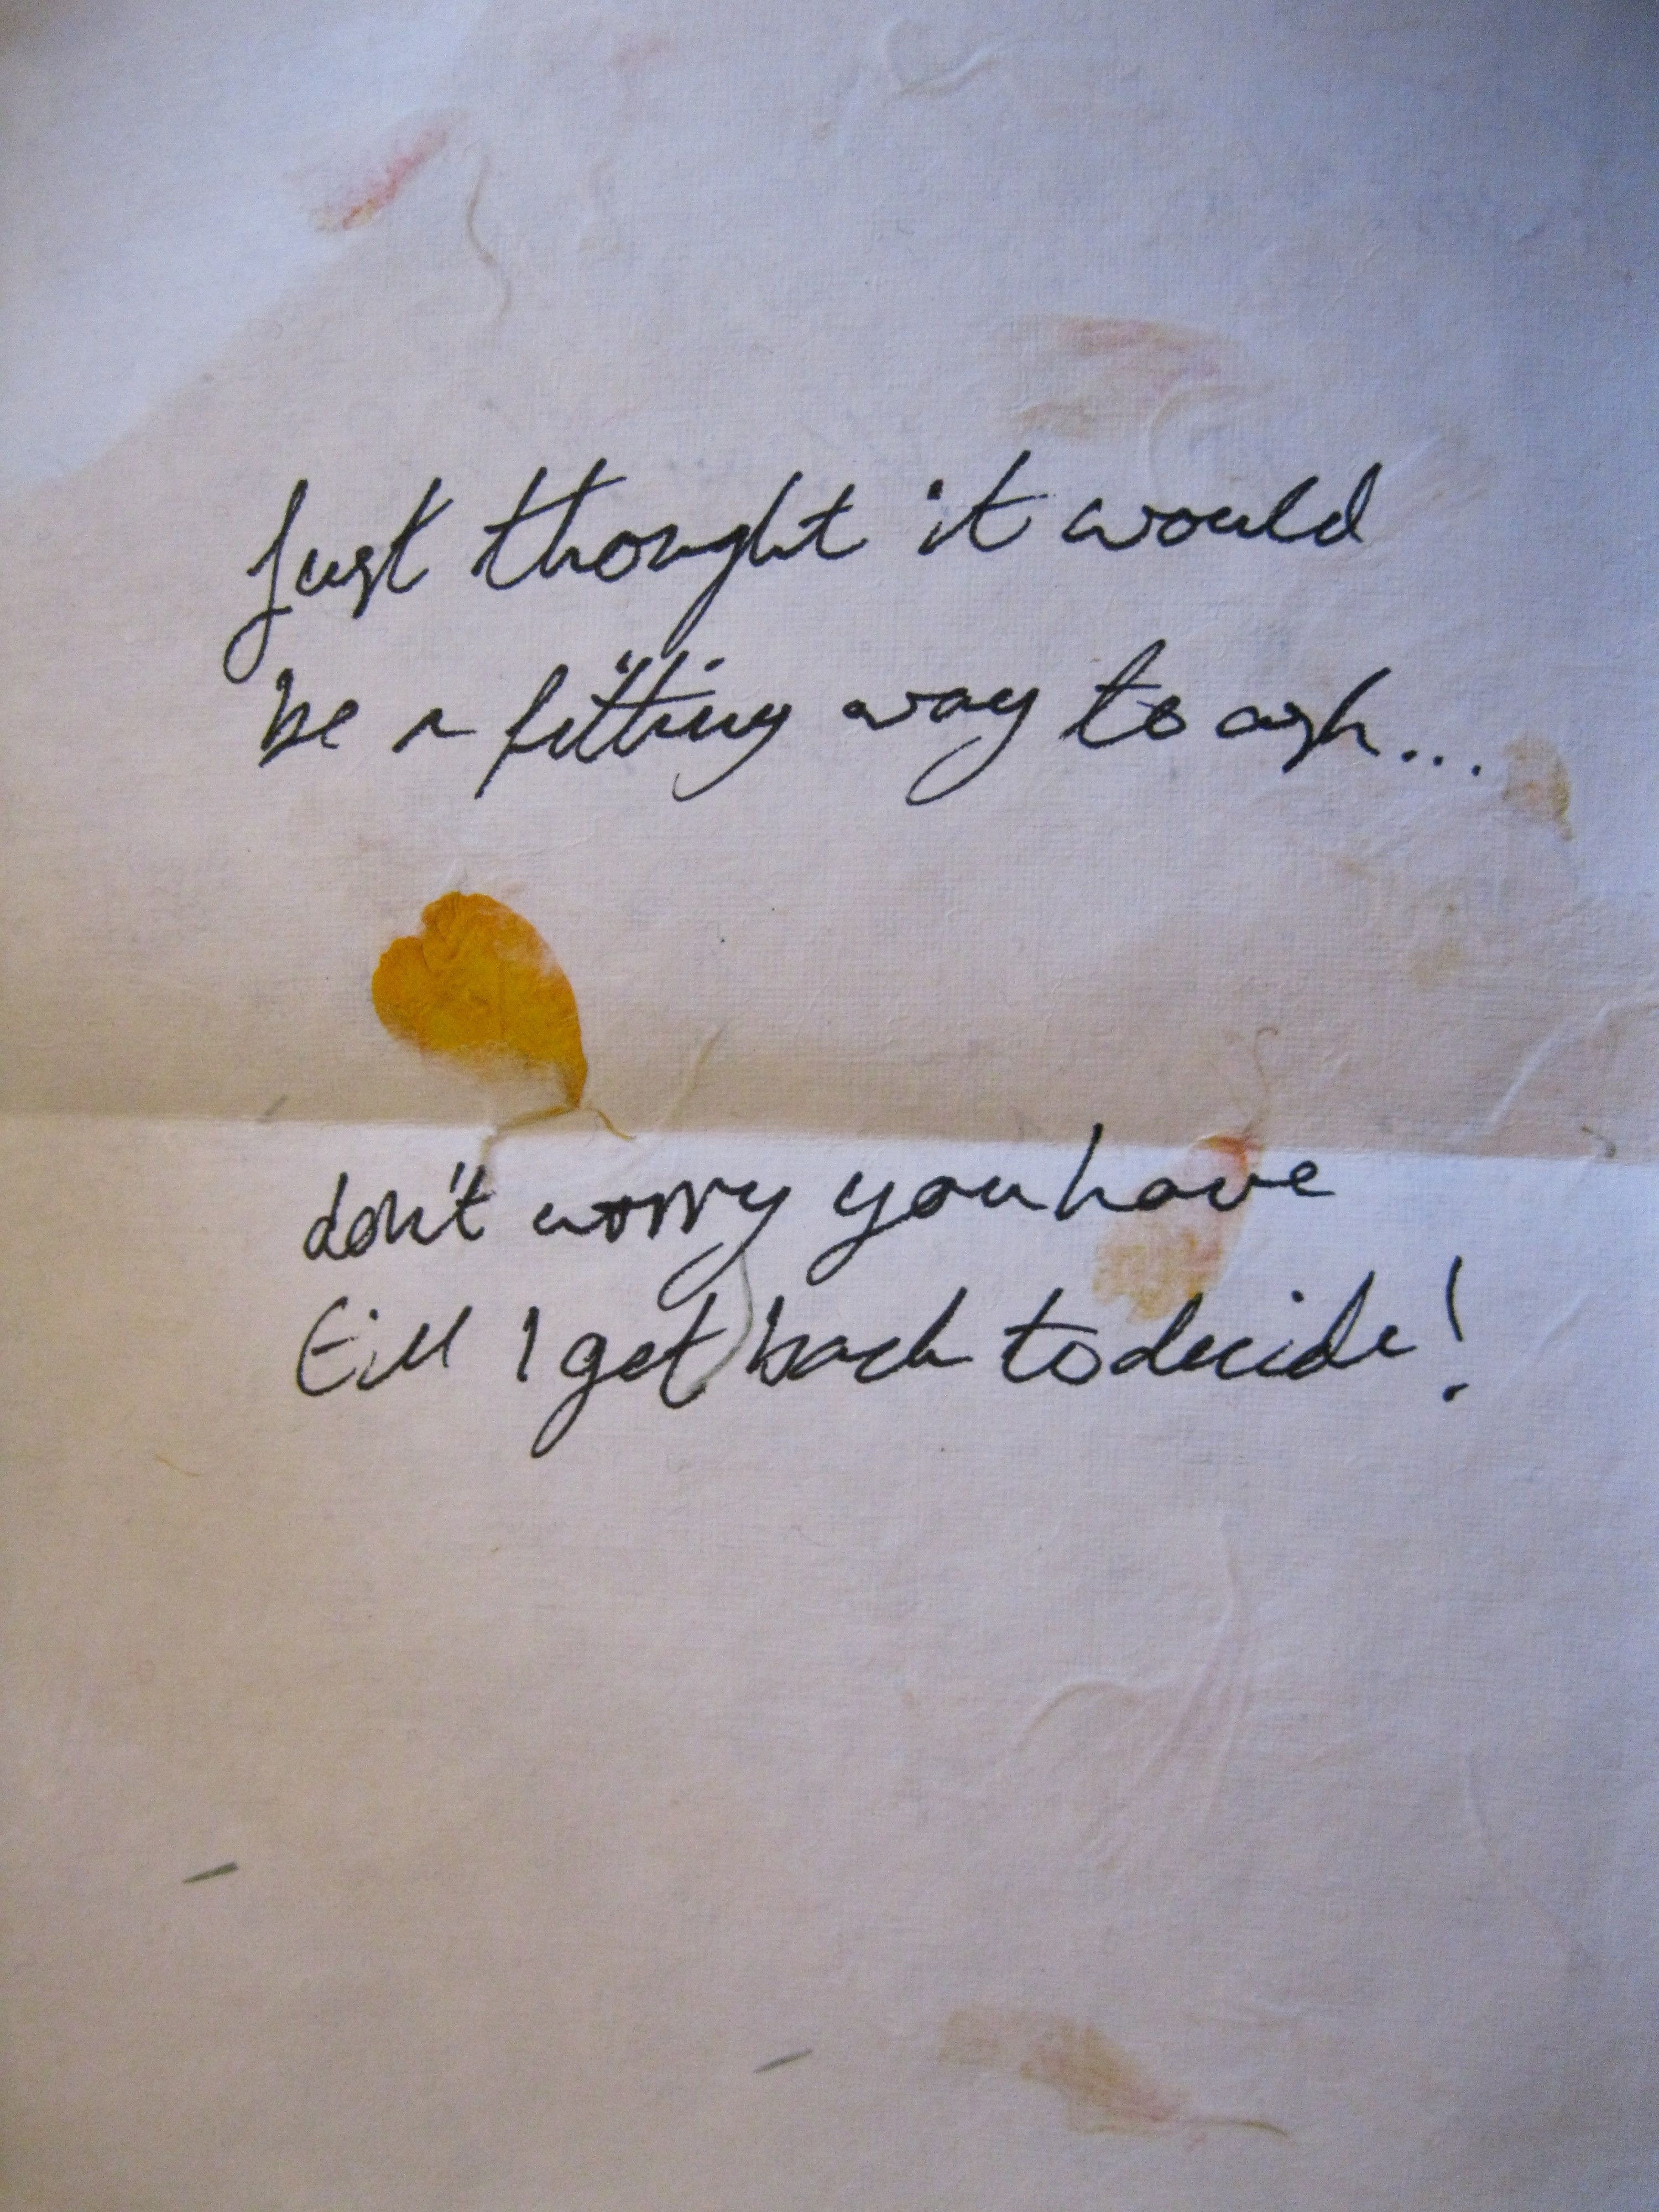 Just thought it would
be a fitting way to ask...
don't worry you have
till I get back to decide!